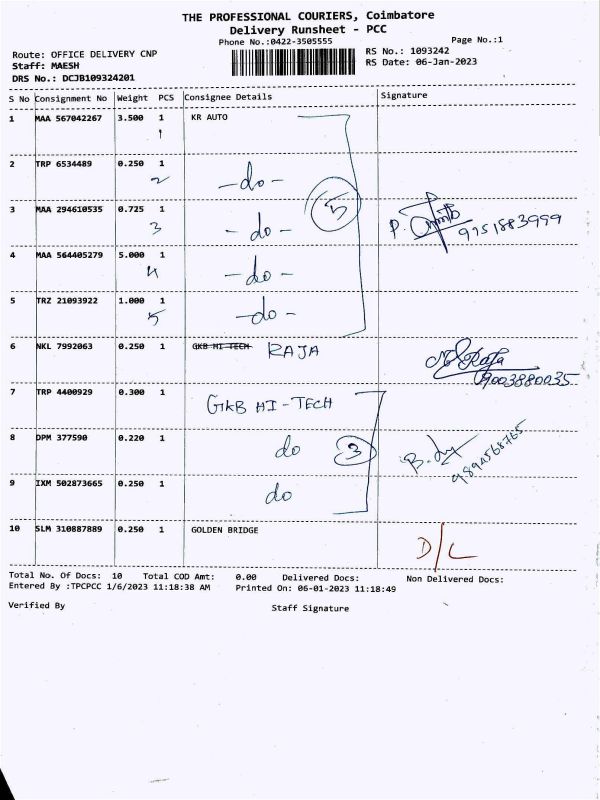 THE PROFESSIONAL COURIERS, Coimbatore
Delivery Runsheet - PCC
Phone No.:0422-3505555
Page No.:1
Route: OFFICE DELIVERY CNP
RS No.: 1093242
Staff: MAESH
RS Date: 06-Jan-2023
DRS No.: DCJB109324201
S No Consignment No Weight PCS Consignee Details Signature
1 MAA 567042267 3.500 1 KR AUTO
1
2 TRP 6534489 0.250 1
2 -do-
5
3 MAA 294610535 0.725 1
3 -do-
P. 9751883999
4 MAA 564405279 5.000 1
4 -do-
5 TRZ 21093922 1.000 1
5 -do-
6 NKL 7992063 0.250 1 GKB HI TECH RAJA
Raja
9003880035
7 TRP 4400929 0.300 1
GKB HI-TECH
8 DPM 377590 0.220 1
do 3
9894568765
9 IXM 502873665 0.250 1
do
10 SLM 310887889 0.250 1 GOLDEN BRIDGE
D/L
Total No. Of Docs: 10 Total COD Amt: 0.00 Delivered Docs: Non Delivered Docs:
Entered By :TPCPCC 1/6/2023 11:18:38 AM Printed On: 06-01-2023 11:18:49
Verified By Staff Signature